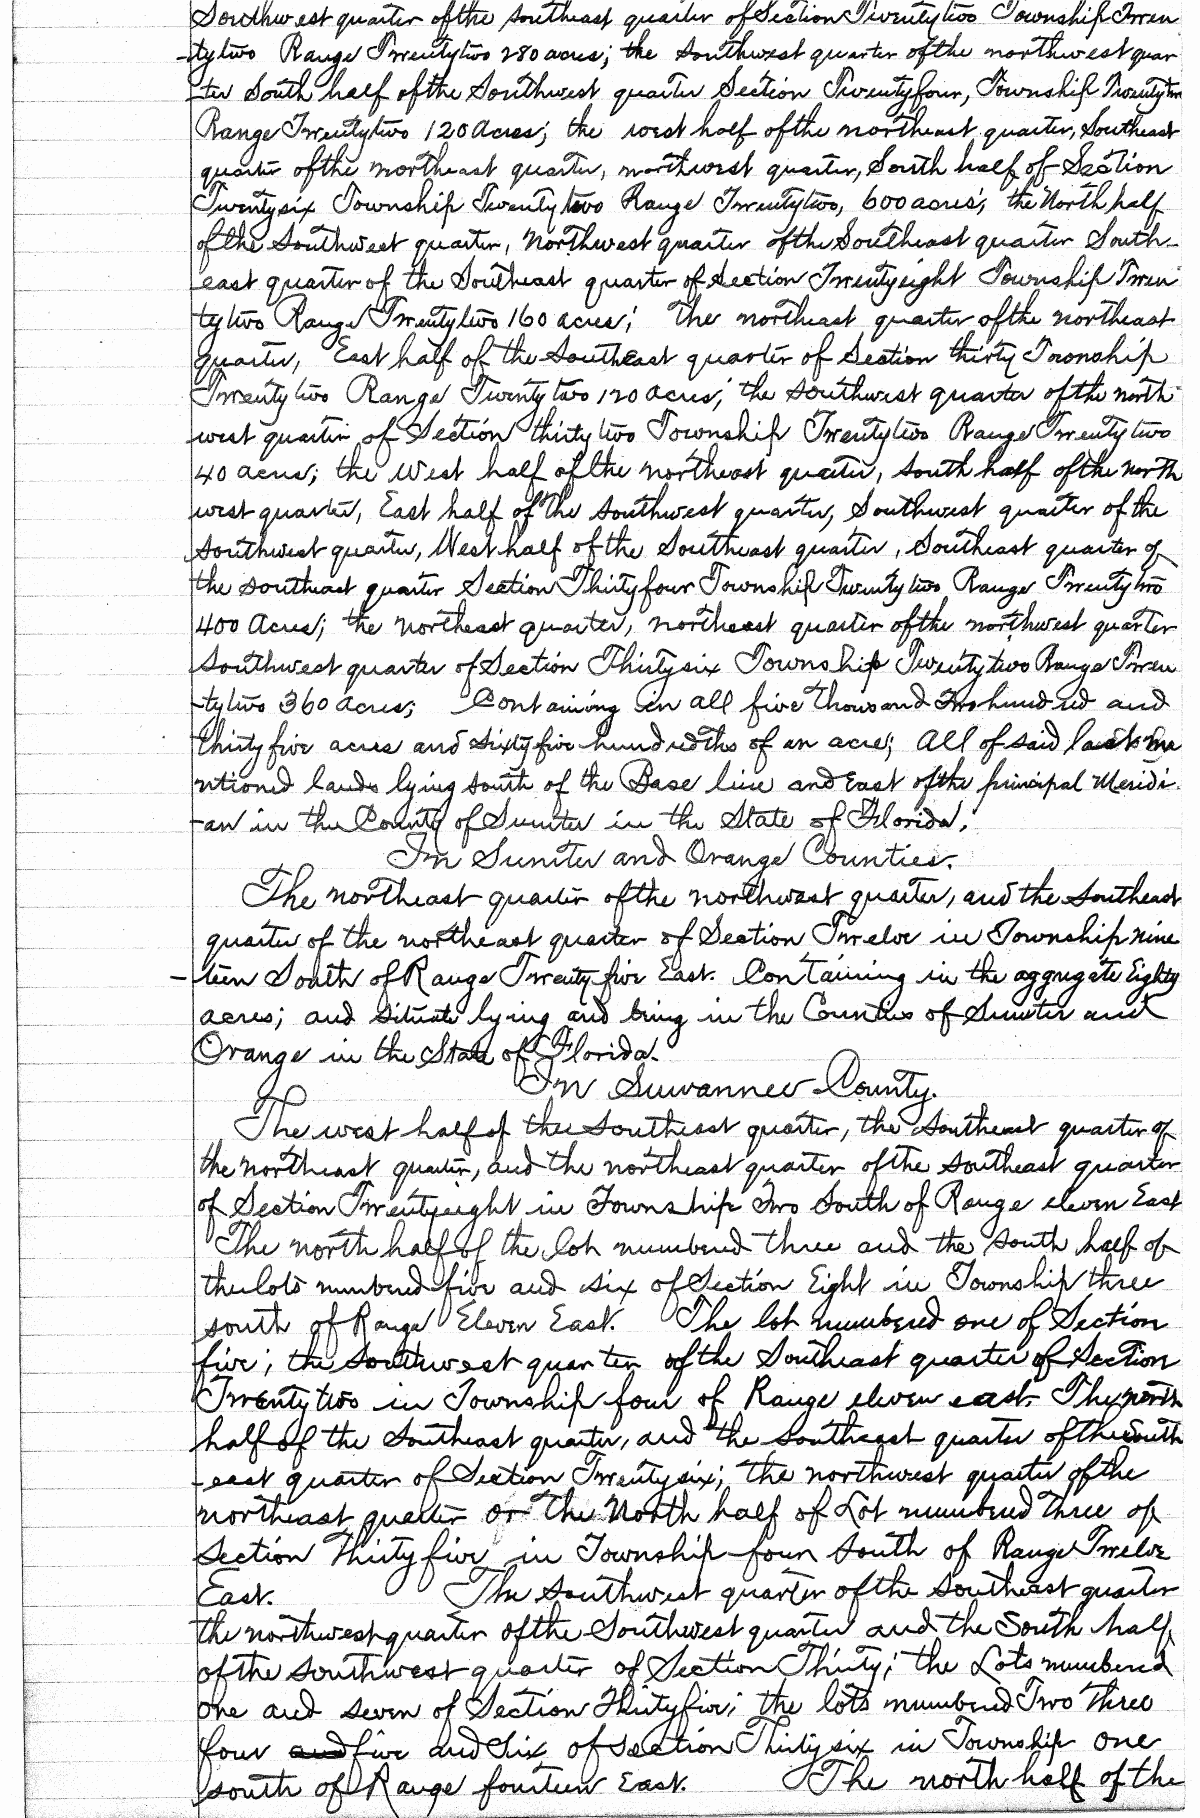 Southwest quarter of the southeast quarter of Section Twenty two Township Twen
-ty two Range Twenty two 280 acres; the Southwest quarter of the northwest quar
-ter South half of the Southwest quarter Section Twenty four, Township Twenty two
Range Twenty two 120 Acres; the west half of the northeast quarter, Southeast
quarter of the northeast quarter, northwest quarter, South half of Section
Twenty six Township Twenty two Range Twenty two, 600 acres; the North half
of the Southwest quarter, Northwest quarter of the Southeast quarter South-
east quarter of the Southeast quarter of Section Twenty eight Township Twen
ty two Range Twenty two 160 acres; The northeast quarter of the northeast
quarter, East half of the Southeast quarter of Section thirty Township
Twenty two Range Twenty two 120 acres; the Southwest quarter of the north
west quarter of Section thirty two Township Twenty two Range Twenty two
40 acres; the West half of the northeast quarter, south half of the north
west quarter, East half of the Southwest quarter, Southwest quarter of the
Southwest quarter, West half of the Southeast quarter, Southeast quarter of
the southeast quarter Section Thirty four Township Twenty two Range Twenty two
400 Acres; the northeast quarter, northeast quarter of the northwest quarter
Southwest quarter of Section Thirty six Township Twenty two Range Twen
-ty two 360 acres; Containing in all five thousand Two hundred and
thirty five acres and sixty five hundredths of an acre; All of said last me
ntioned lands lying south of the Base line and East of the principal Meridi-
-an in the County of Sumter in the State of Florida.
In Sumter and Orange Counties.
The northeast quarter of the northwest quarter, and the Southeast
quarter of the northeast quarter of Section Twelve in Township nine
-teen South of Range Twenty five East. Containing in the aggregate Eighty
acres; and situate lying and being in the Counties of Sumter and
Orange in the State of Florida.
In Suwannee County.
The west half of the Southeast quarter, the Southeast quarter of
the northeast quarter, and the northeast quarter of the southeast quarter
of Section Twenty eight in Township Two South of Range eleven East
The north half of the lot numbered three and the south half of
the lots numbered five and six of Section Eight in Township three
south of Range Eleven East. The lot numbered one of Section
five; the Southwest quarter of the Southeast quarter of Section
Twenty two in Township four of Range eleven east. The north
half of the Southeast quarter, and the southeast quarter of the South
-east quarter of Section Twenty six; the northwest quarter of the
northeast quarter or the North half of Lot numbered three of
Section Thirty five in Township four South of Range Twelve
East. The Southwest quarter of the Southeast quarter
the northwest quarter of the Southwest quarter and the South half
of the Southwest quarter of Section Thirty; the Lots numbered
one and seven of Section Thirty five; the lots numbered Two three
four and five and Six of section Thirty six in Township one
south of Range fourteen East. The north half of the